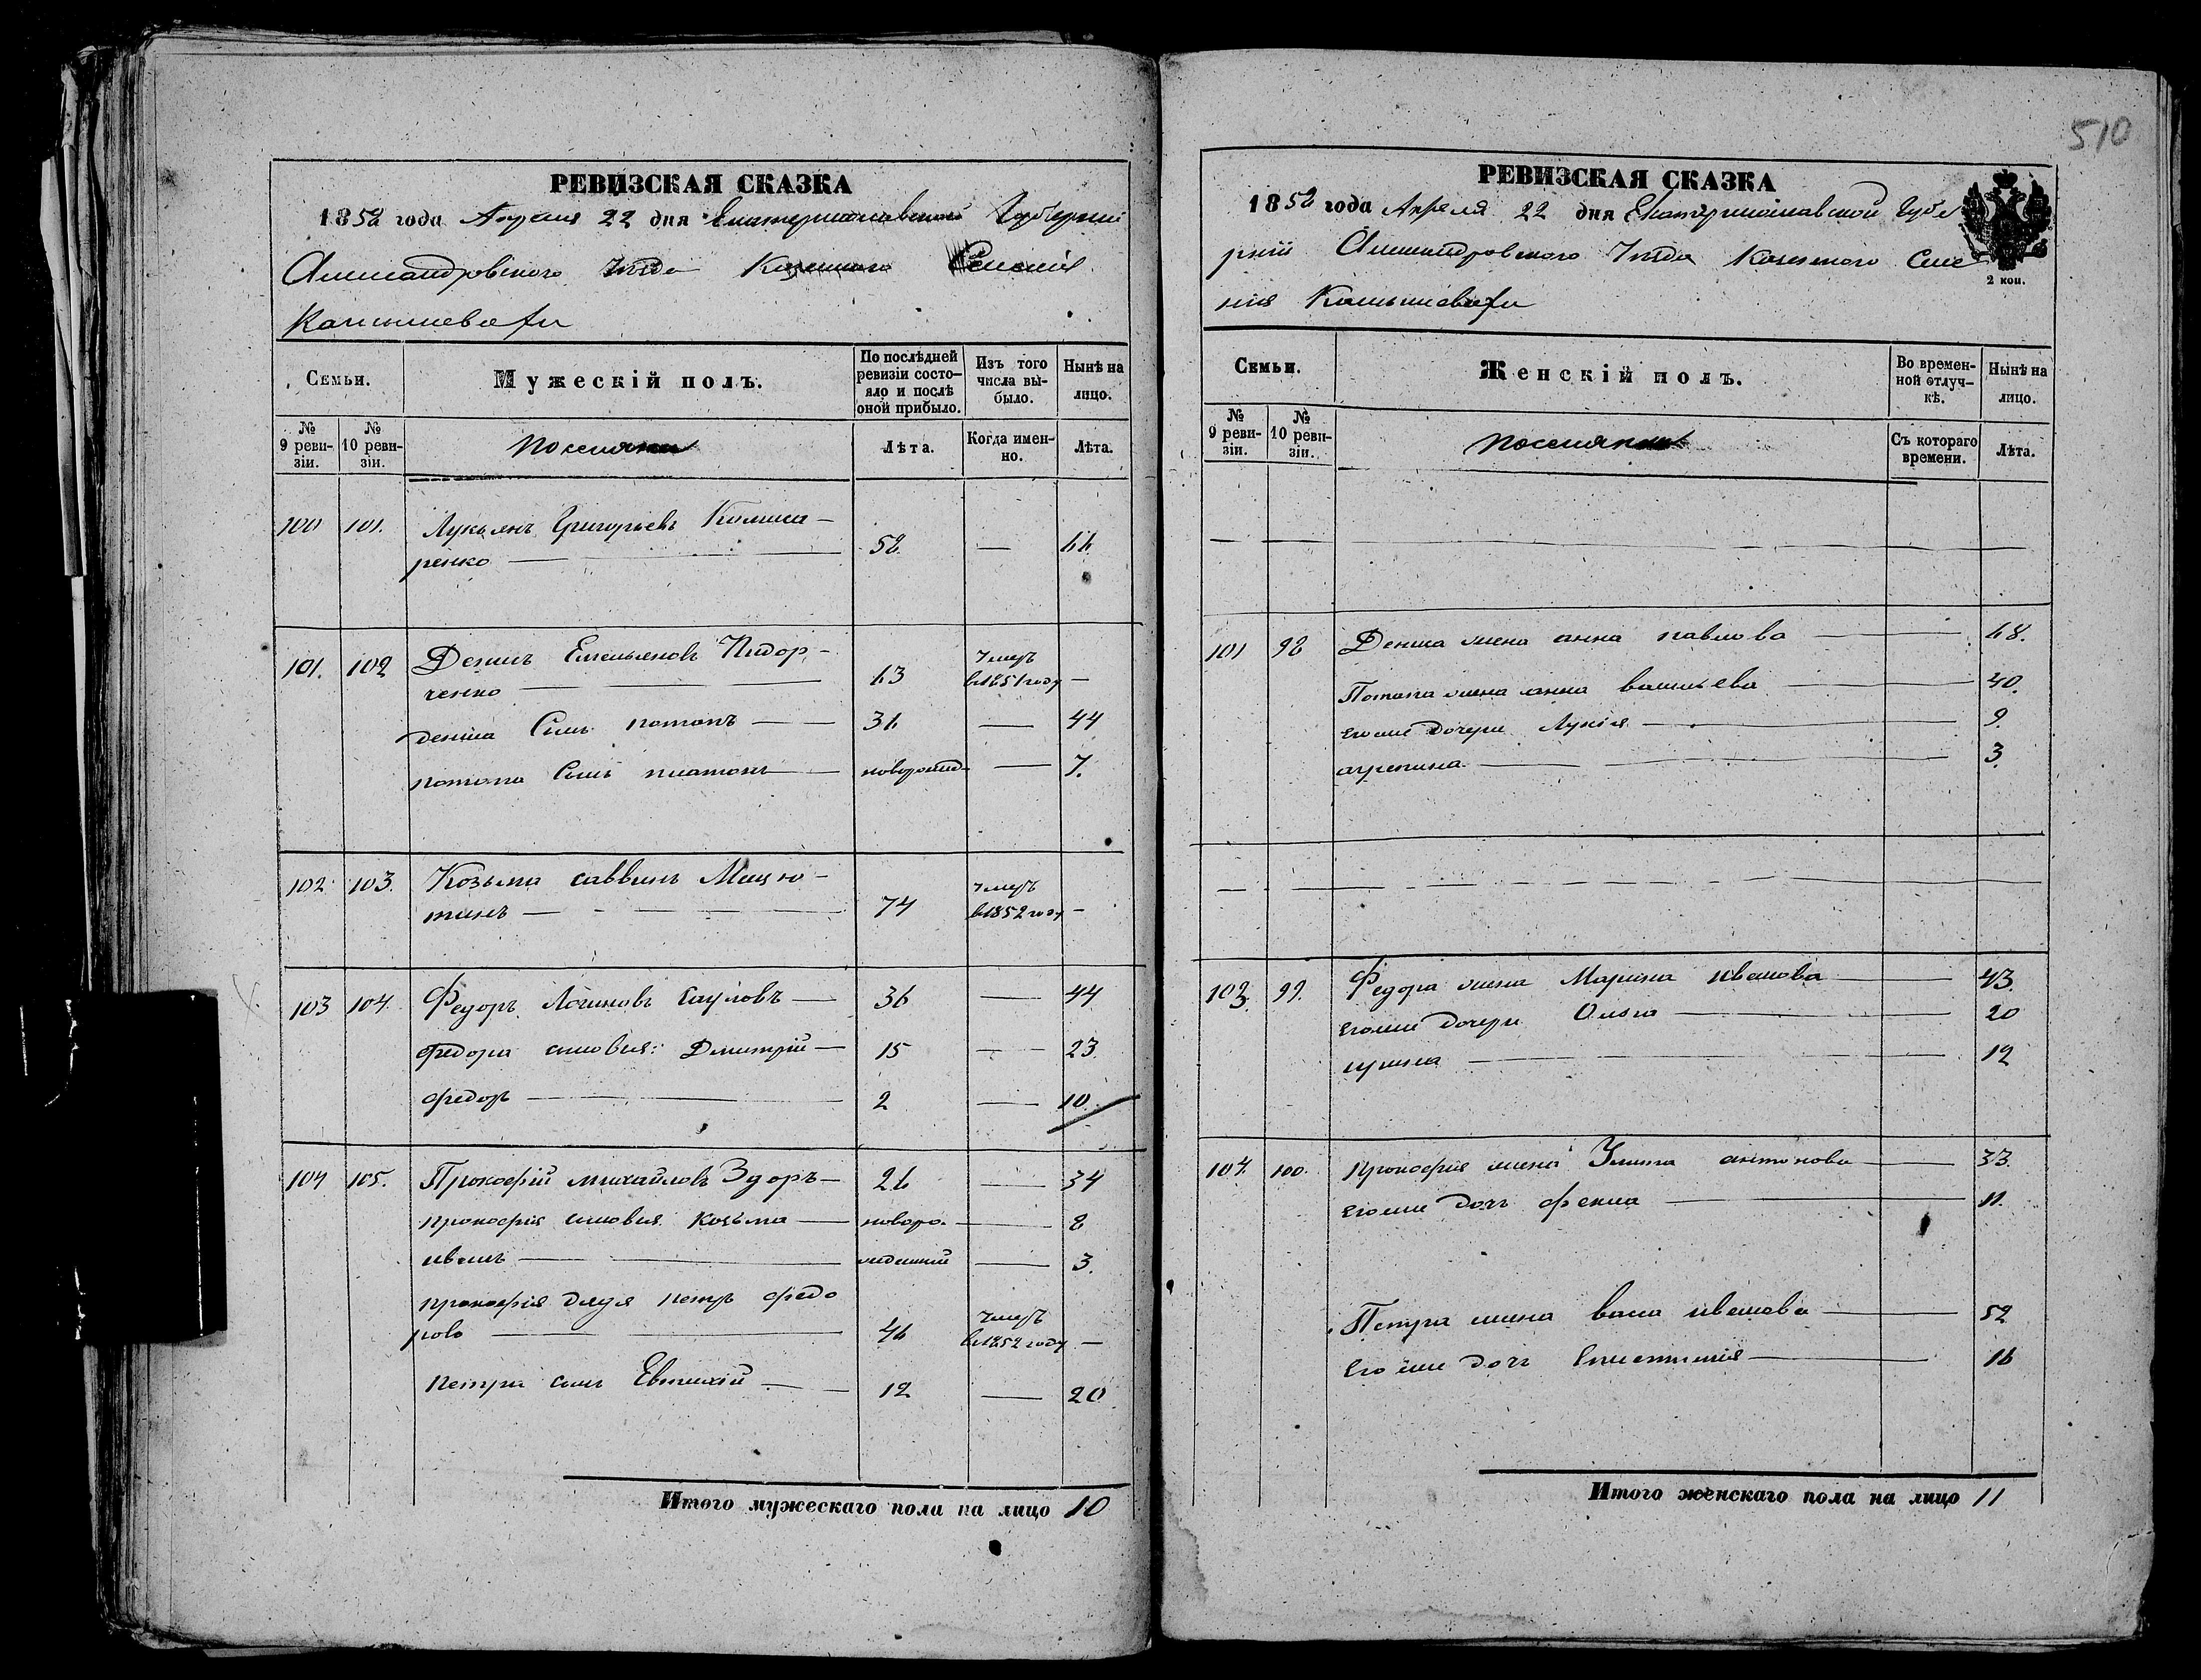 510
РЕВИЗСКАЯ СКАЗКА
1858 года Апреля 22 дня Екатеринославской Губернии
Александровского Уезда Казенного Селения
Камышевахи
Семьи.
Мужескій полъ.
По послѣдней ревизіи состо-яло и послѣ оной прибыло.
Изъ того числа вы-было.
Нынѣ на лицо.
№ 9 реви-зіи.
№ 10 реви-зіи.
Поселяне
Лѣта.
Когда имен-но.
Лѣта.
100 101. Лукьянъ Григорьевъ Комиса-
ренко — 58. — 66
101. 102 Денисъ Емельяновъ Сидор-
ченко — 63 Умеръ в 1851 году —
Дениса Сынъ потапъ — 36 — 44
потапа Сынъ платонъ — новорожд — 7.
102 103. Козьма саввинъ Мацю-
тинъ — 74 умеръ в 1852 году —
103 104. Федоръ Логиновъ Сауловъ — 36 — 44
Федора сыновья: Дмитрій — 15 — 23.
Федоръ — 2 — 10.
104 105. Прокофій михайловъ Здоръ — 26 — 34
прокофія сыновья козьма — новоро- — 8
иванъ — жденный — 3.
прокофія дядя петръ федо
ровъ — 46 Умеръ в 1852 году —
петра сынъ Евтихій — 12 — 20
Итого мужескаго пола на лицо 10
РЕВИЗСКАЯ СКАЗКА
1858 года Апреля 22 дня Екатеринославской Губе
рніи Александровского Уезда Казенного Селе
нія Камышевахи
2 коп.
Семьи.
Женскій полъ.
Во времен-ной отлуч-кѣ.
Нынѣ на лицо.
№ 9 реви-зіи.
№ 10 реви-зіи.
Поселянки
Съ котораго времени.
Лѣта.
101 98 Дениса жена анна павлова — 68.
Потапа жена анна васильева — 40.
его же дочери Лукія — 9.
агрепина — 3.
103. 99. Федора жена Марина иванова — 43.
его же дочери Ольга — 20
ирина — 12
104. 100. прокофія жена Улита антонова — 33.
его же дочь фекла — 11.
Петра жена васа иванова — 52
Его же дочь Епистимія — 16
Итого женскаго пола на лицо 11